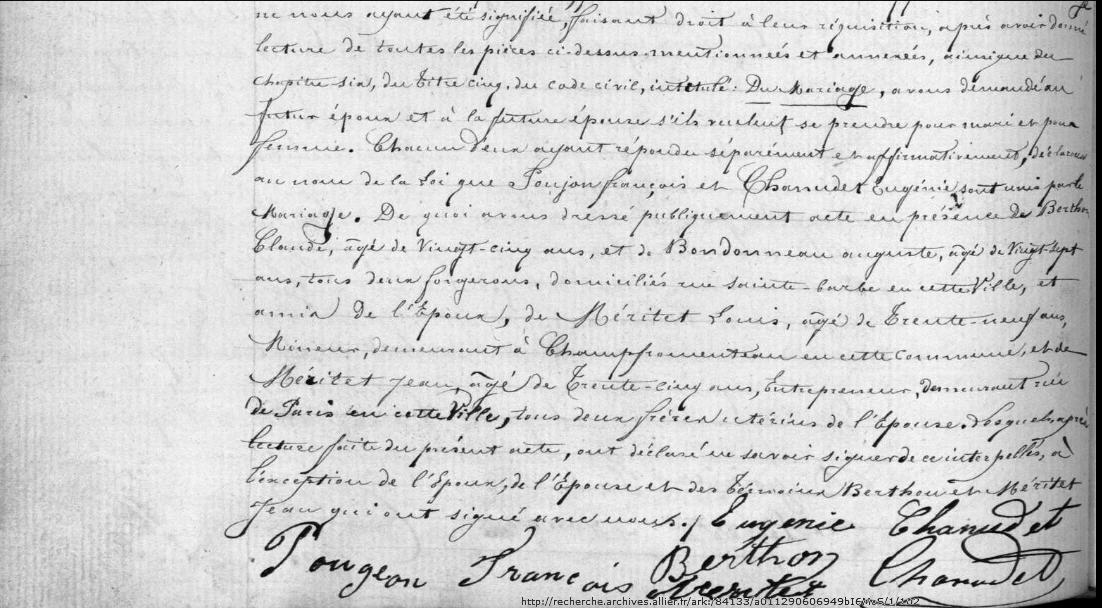 ne nous ayant été signifiée, faisant droit à leur réquisition, après avoir donné
lecture de toutes les pièces ci-dessus mentionnées et annexées, ainsi que du
chapitre six, du titre cinq, du code civil, intitulé : Du Mariage, avons demandé au
futur époux et à la future épouse s'ils veulent se prendre pour mari et pour
femme. Chacun d'eux ayant répondu séparément et affirmativement, déclarons
au nom de la Loi que Poujon françois et Chanudet Eugénie sont unis par le
Mariage. De quoi avons dressé publiquement acte en présence de Berthon
Claude, âgé de Vingt-cinq ans, et de Bondonneau auguste, âgé de Vingt-sept
ans, tous deux forgerons, domiciliés rue sainte-barbe en cette Ville, et
amis de l'Epoux, de Méritet Louis, âgé de Trente-neuf ans,
Mineur, demeurant à Champfromenteau en cette commune, et de
Méritet Jean, âgé de Trente-cinq ans, Entrepreneur, demeurant rue
de Paris en cette Ville, tous deux frères utérins de l'Epouse. Lesquels après
lecture faite du présent acte, ont déclaré ne savoir signer de ce interpellés, à
l'exception de l'Epoux, de l'Epouse et des Témoins Berthon et Méritet
Jean qui ont signé avec nous. Eugenie Chanudet
Pougeon François Berthon Chanudet
Meritet
http://recherche.archives.allier.fr/ark:/84133/a011290606949bI6